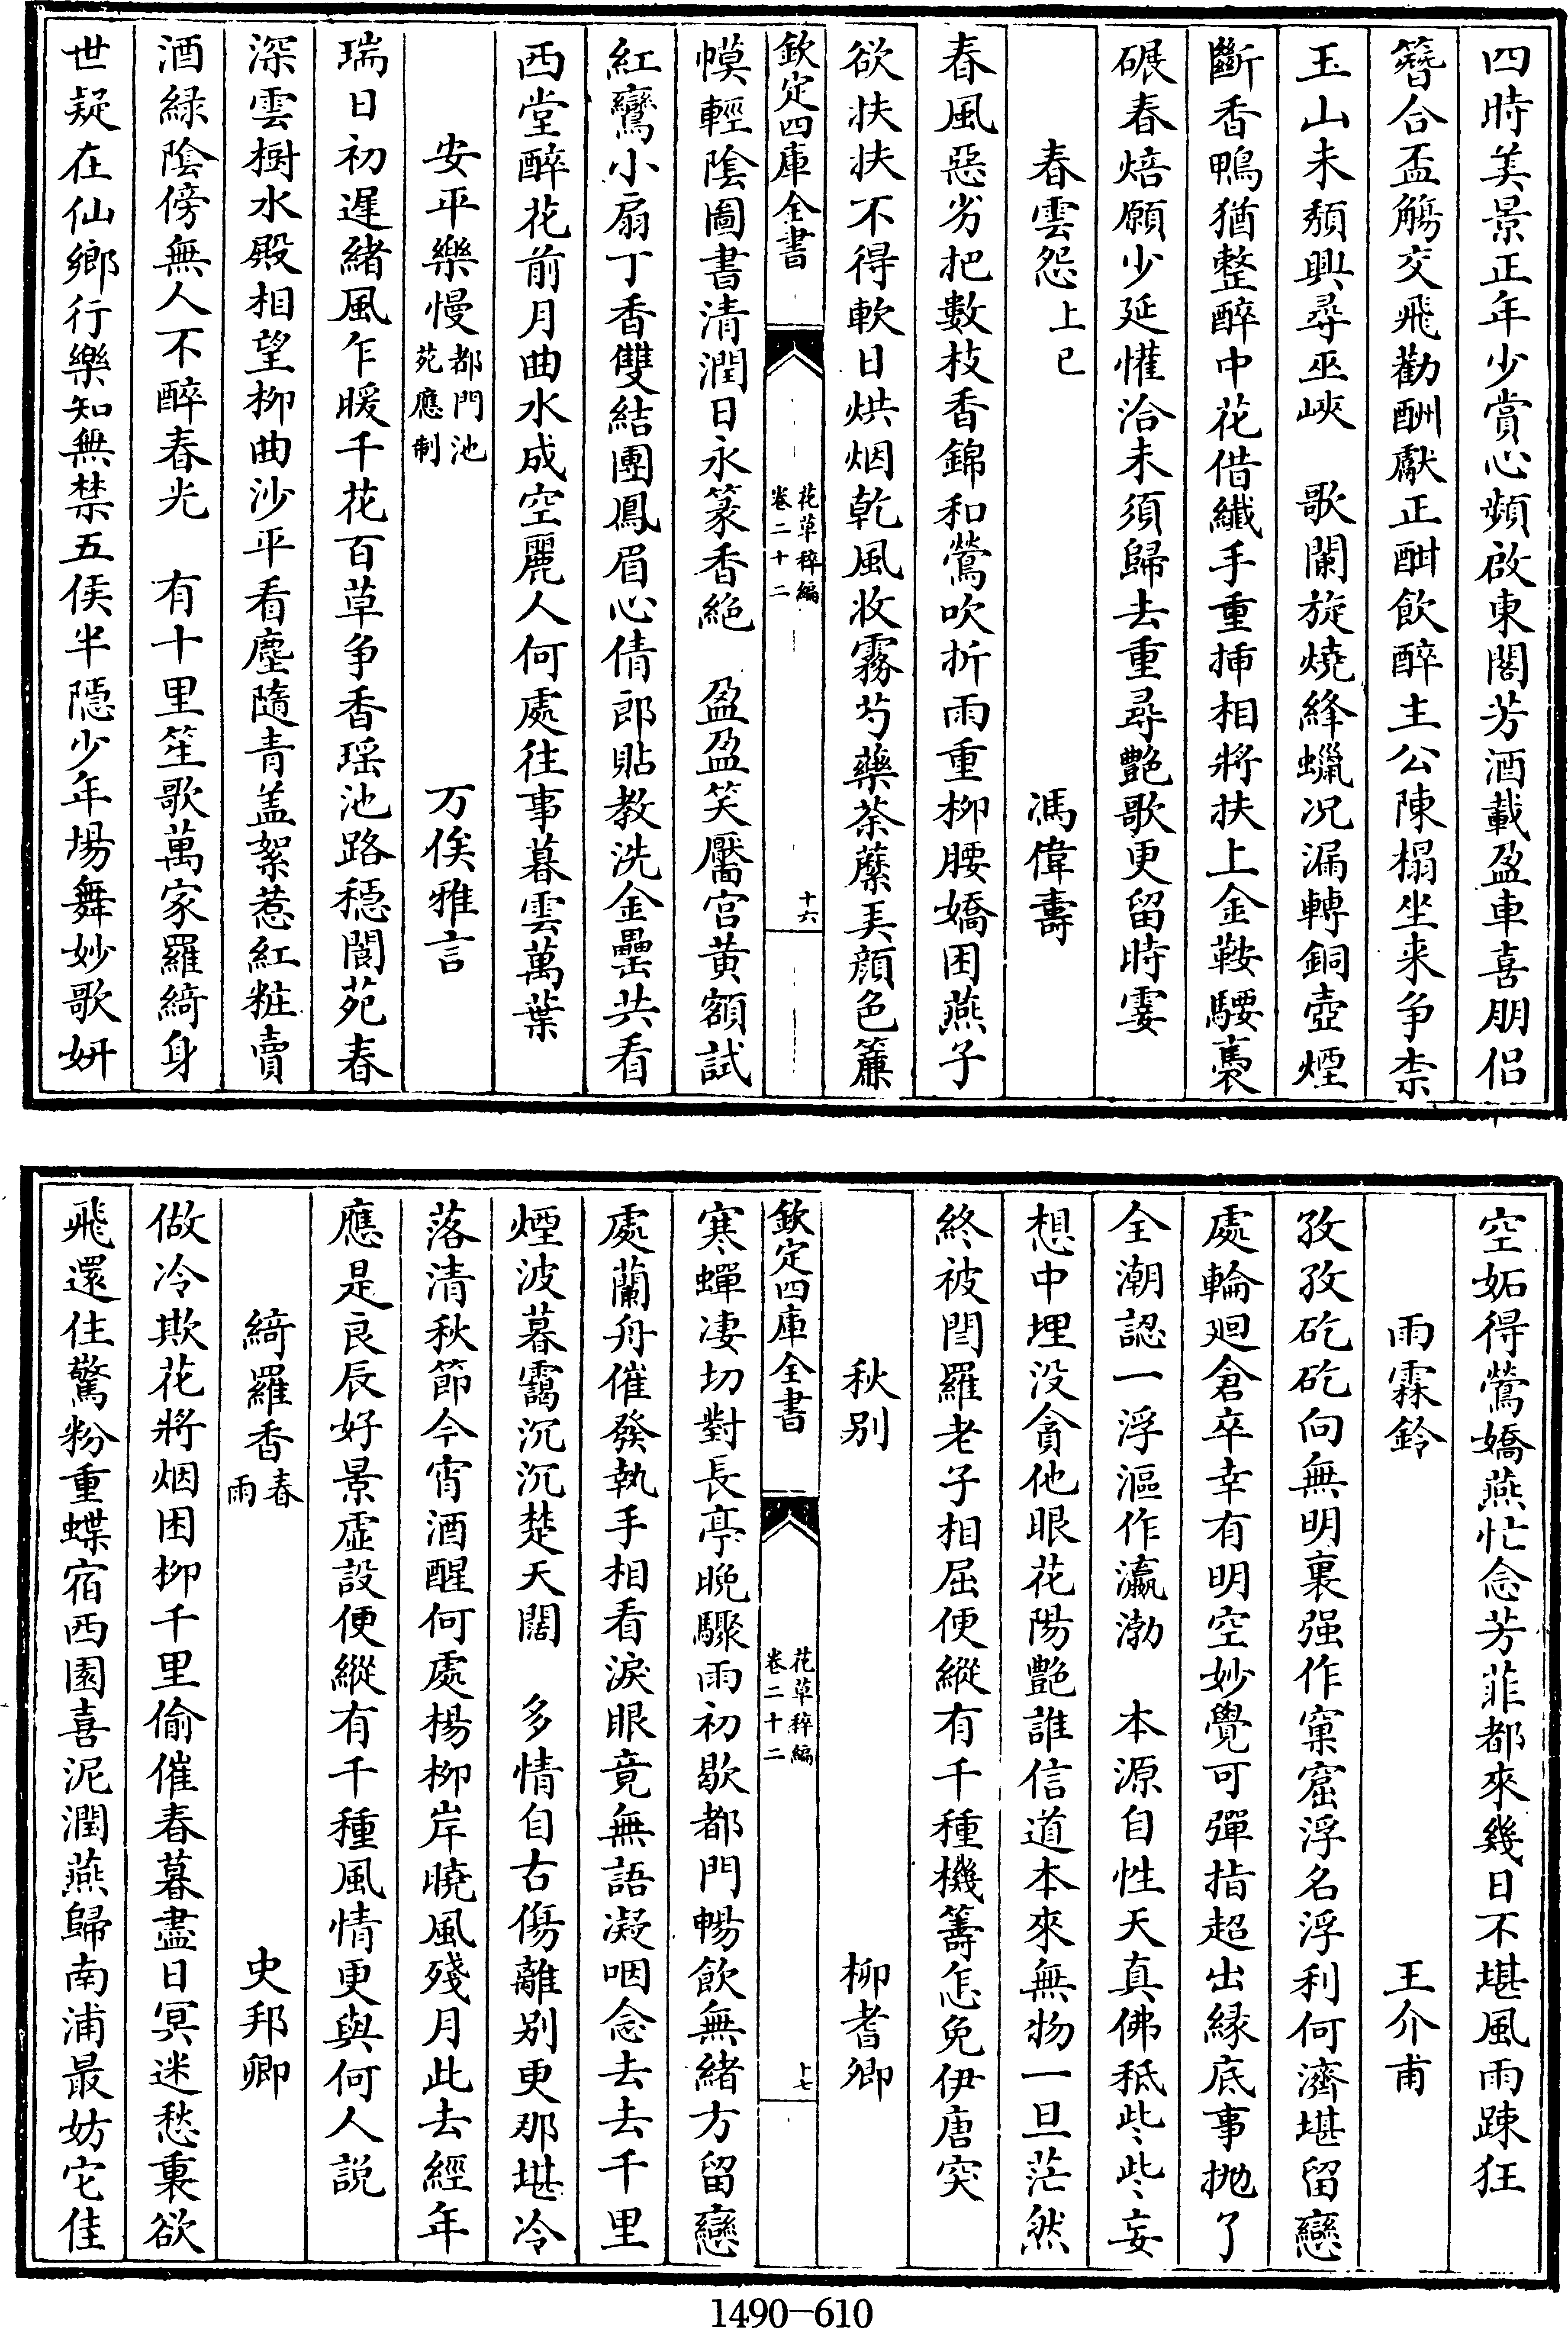 四時美景正年少賞心頻啟東閣芳酒載盈車喜朋侣
簪合盃觴交飛勸酬獻正酣飲醉主公陳榻坐来争柰
玉山未頽興尋巫峽　歌闌旋燒絳蠟况漏轉銅壺煙
斷香鴨猶整醉中花借纖手重揷相將扶上金鞍騕褭
碾春焙願少延懽洽未須歸去重尋艶歌更留時霎
春雲怨上巳　馮偉壽
春風惡劣把數枝香錦和鶯吹折雨重柳腰嬌困燕子
欲扶扶不得軟日烘烟乾風收霧芍藥荼䕷美顔色簾
欽定四庫全書　花草稡編
卷二十二　十六
幙輕陰圖書清潤日永篆香絶　盈盈笑靨宫黄額試
紅鸞小扇丁香雙結團鳳眉心倩郎貼教洗金罍共看
西堂醉花前月曲水成空麗人何處往事暮雲萬葉
安平樂慢都門池
苑應制　万俟雅言
瑞日初遲緒風乍暖千花百草争香瑶池路穏閬苑春
深雲樹水殿相望柳曲沙平看塵隨青盖絮惹紅粧賣
酒緑陰傍無人不醉春光　有十里笙歌萬家羅綺身
世疑在仙鄉行樂知無禁五侯半隠少年場舞妙歌妍
空妬得鶯嬌燕忙念芳菲都來幾日不堪風雨踈狂
雨霖鈴　王介甫
孜孜矻矻向無明裏强作窠窟浮名浮利何濟堪留戀
處輪廻倉卒幸有明空妙覺可彈指超出緣底事抛了
全潮認一浮漚作瀛渤　本源自性天真佛秪些些妄
想中埋没貪他眼花陽艶誰信道本來無物一旦茫然
終被閻羅老子相屈便縱有千種機籌怎免伊唐突
秋别　柳耆卿
欽定四庫全書　花草稡編
卷二十二　十七
寒蟬凄切對長亭晚驟雨初歇都門暢飲無緒方留戀
處蘭舟催發執手相看淚眼竟無語凝咽念去去千里
煙波暮靄沉沉楚天闊　多情自古傷離别更那堪冷
落清秋節今宵酒醒何處楊柳岸曉風殘月此去經年
應是良辰好景虚設便縱有千種風情更與何人説
綺羅香春
雨　史邦卿
做冷欺花將烟困柳千里偷催春暮盡日冥迷愁裏欲
飛還住驚粉重蝶宿西園喜泥潤燕歸南浦最妨它佳
1490-610